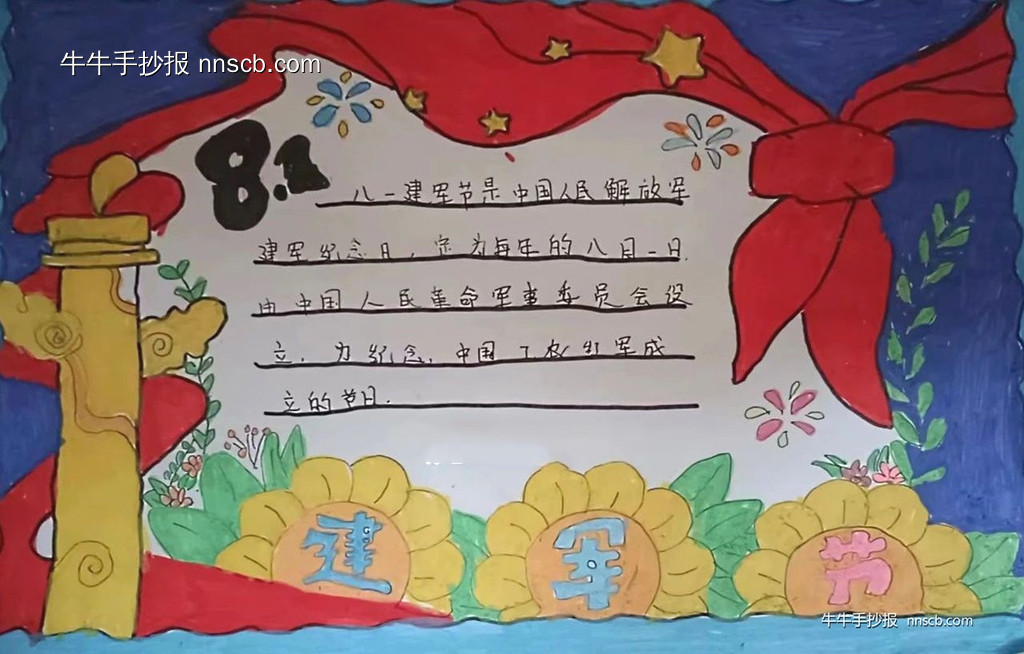 牛牛手抄报 nnscb.com
8.1
八一建军节是中国人民解放军
建军纪念日，定为每年的八月一日.
由中国人民革命军事委员会设
立，为纪念，中国工农红军成
立的节日.
建军节
牛牛手抄报 nnscb.com